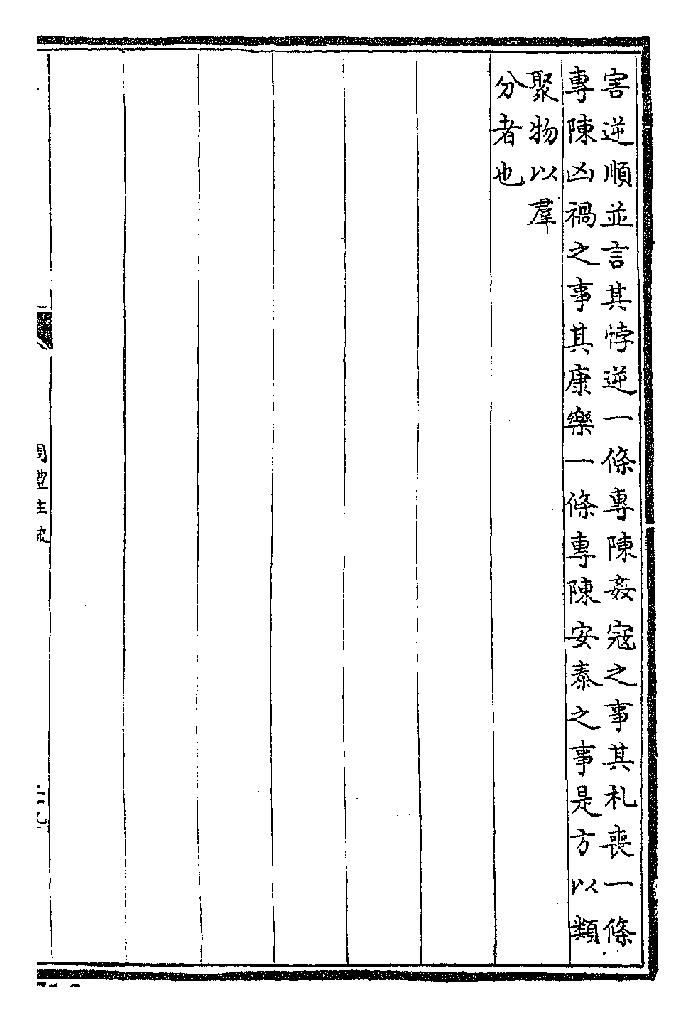 害逆順並言其悖逆一條專陳姦寇之事其札喪一條
專陳凶禍之事其康樂一條專陳安泰之事是方以類
聚物以羣
分者也